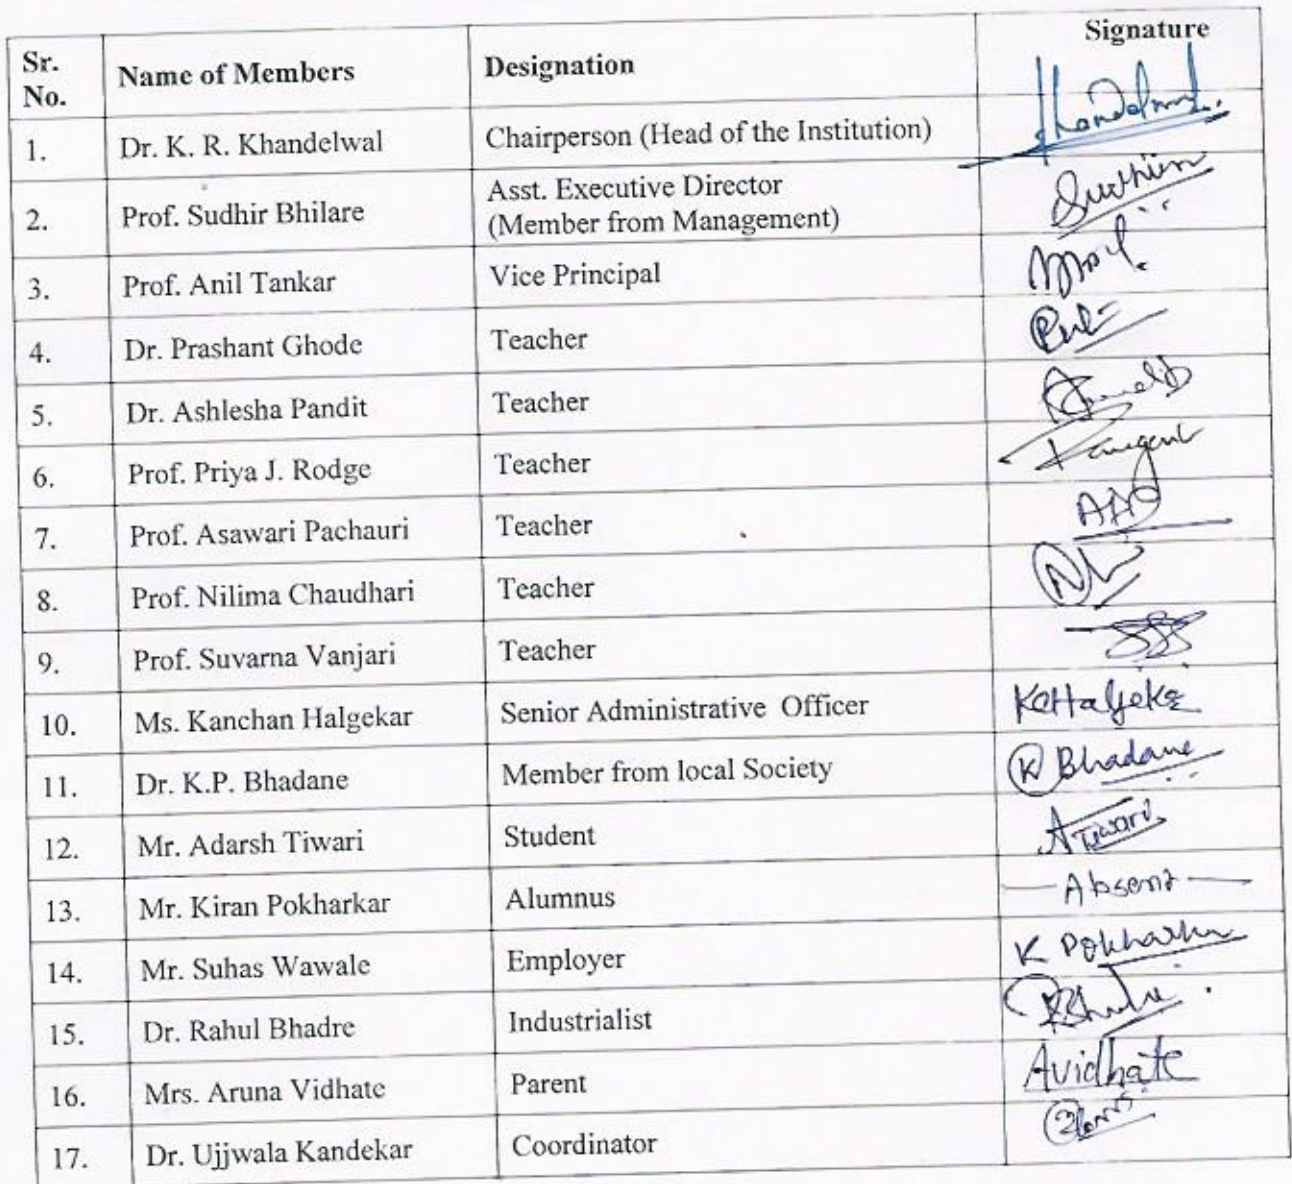 Sr. No. Name of Members Designation Signature
1. Dr. K. R. Khandelwal Chairperson (Head of the Institution) Khandelwal
2. Prof. Sudhir Bhilare Asst. Executive Director (Member from Management) Sudhir
3. Prof. Anil Tankar Vice Principal
4. Dr. Prashant Ghode Teacher
5. Dr. Ashlesha Pandit Teacher
6. Prof. Priya J. Rodge Teacher
7. Prof. Asawari Pachauri Teacher
8. Prof. Nilima Chaudhari Teacher
9. Prof. Suvarna Vanjari Teacher
10. Ms. Kanchan Halgekar Senior Administrative Officer
11. Dr. K.P. Bhadane Member from local Society K Bhadane
12. Mr. Adarsh Tiwari Student ATiwari
13. Mr. Kiran Pokharkar Alumnus Absent
14. Mr. Suhas Wawale Employer K Pokharkar
15. Dr. Rahul Bhadre Industrialist
16. Mrs. Aruna Vidhate Parent Avidhate
17. Dr. Ujjwala Kandekar Coordinator